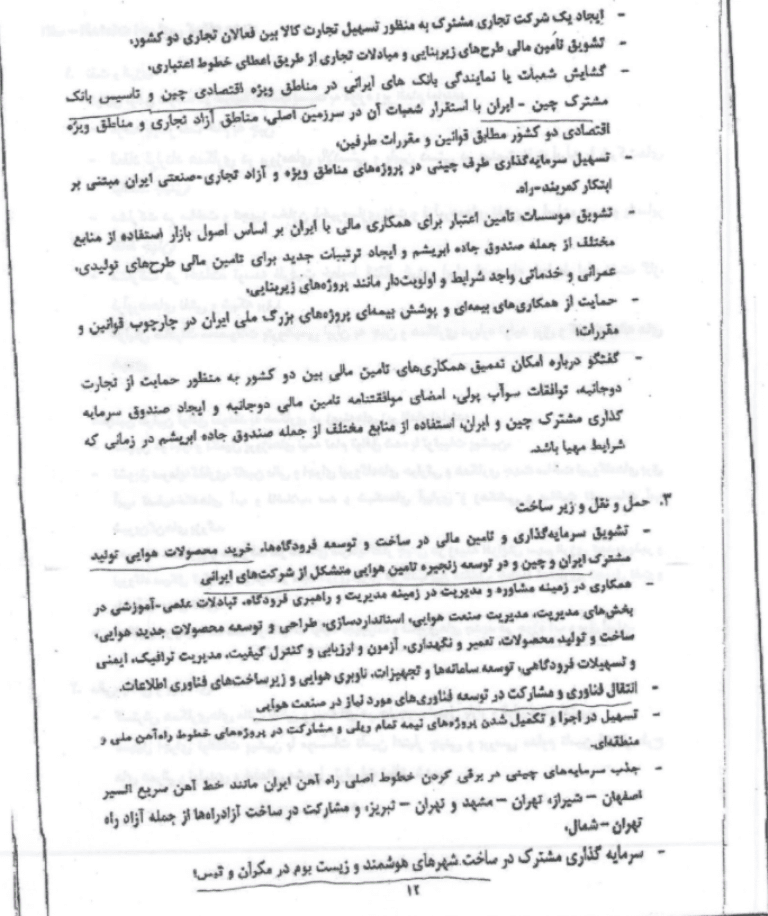 - ایجاد یک شرکت تجاری مشترک به منظور تسهیل تجارت کالا بین فعالان تجاری دو کشور.
- تشویق تأمین مالی طرح‌های زیربنایی و مبادلات تجاری از طریق اعطای خطوط اعتباری.
- گشایش شعبات یا نمایندگی بانک های ایرانی در مناطق ویژه اقتصادی چین و تاسیس بانک
مشترک چین - ایران با استقرار شعبات آن در سرزمین اصلی، مناطق آزاد تجاری و مناطق ویژه
اقتصادی دو کشور مطابق قوانین و مقررات طرفین،
- تسهیل سرمایه‌گذاری طرف چینی در پروژه‌های مناطق ویژه و آزاد تجاری-صنعتی ایران مبتنی بر
ابتکار کمربند-راه.
- تشویق موسسات تامین اعتبار برای همکاری مالی با ایران بر اساس اصول بازار استفاده از منابع
مختلف از جمله صندوق جاده ابریشم و ایجاد ترتیبات جدید برای تامین مالی طرح‌های تولیدی،
عمرانی و خدماتی واجد شرایط و اولویت‌دار مانند پروژه‌های زیربنایی.
- حمایت از همکاری‌های بیمه‌ای و پوشش بیمه‌ای پروژه‌های بزرگ ملی ایران در چارچوب قوانین و
مقررات؛
- گفتگو درباره امکان تعمیق همکاری‌های تامین مالی بین دو کشور به منظور حمایت از تجارت
دوجانبه، توافقات سوآپ پولی، امضای موافقتنامه تامین مالی دوجانبه و ایجاد صندوق سرمایه
گذاری مشترک چین و ایران، استفاده از منابع مختلف از جمله صندوق جاده ابریشم در زمانی که
شرایط مهیا باشد.
۳. حمل و نقل و زیر ساخت
- تشویق سرمایه‌گذاری و تامین مالی در ساخت و توسعه فرودگاه‌ها، خرید محصولات هوایی تولید
مشترک ایران و چین و در توسعه زنجیره تامین هوایی متشکل از شرکت‌های ایرانی
- همکاری در زمینه مشاوره و مدیریت در زمینه مدیریت و راهبری فرودگاه، تبادلات علمی-آموزشی در
بخش‌های مدیریت، مدیریت صنعت هوایی، استانداردسازی، طراحی و توسعه محصولات جدید هوایی،
ساخت و تولید محصولات، تعمیر و نگهداری، آزمون و ارزیابی و کنترل کیفیت، مدیریت ترافیک، ایمنی
و تسهیلات فرودگاهی، توسعه سامانه‌ها و تجهیزات، ناوبری هوایی و زیرساخت‌های فناوری اطلاعات.
- انتقال فناوری و مشارکت در توسعه فناوری‌های مورد نیاز در صنعت هوایی
- تسهیل در اجرا و تکمیل شدن پروژه‌های نیمه تمام ریلی و مشارکت در پروژه‌های خطوط راه‌آهن ملی و
منطقه‌ای.
- جذب سرمایه‌های چینی در برقی کردن خطوط اصلی راه آهن ایران مانند خط آهن سریع السیر
اصفهان – شیراز، تهران – مشهد و تهران – تبریز، و مشارکت در ساخت آزادراه‌ها از جمله آزاد راه
تهران – شمال،
- سرمایه گذاری مشترک در ساخت شهرهای هوشمند و زیست بوم در مکران و تیس؛
۱۲